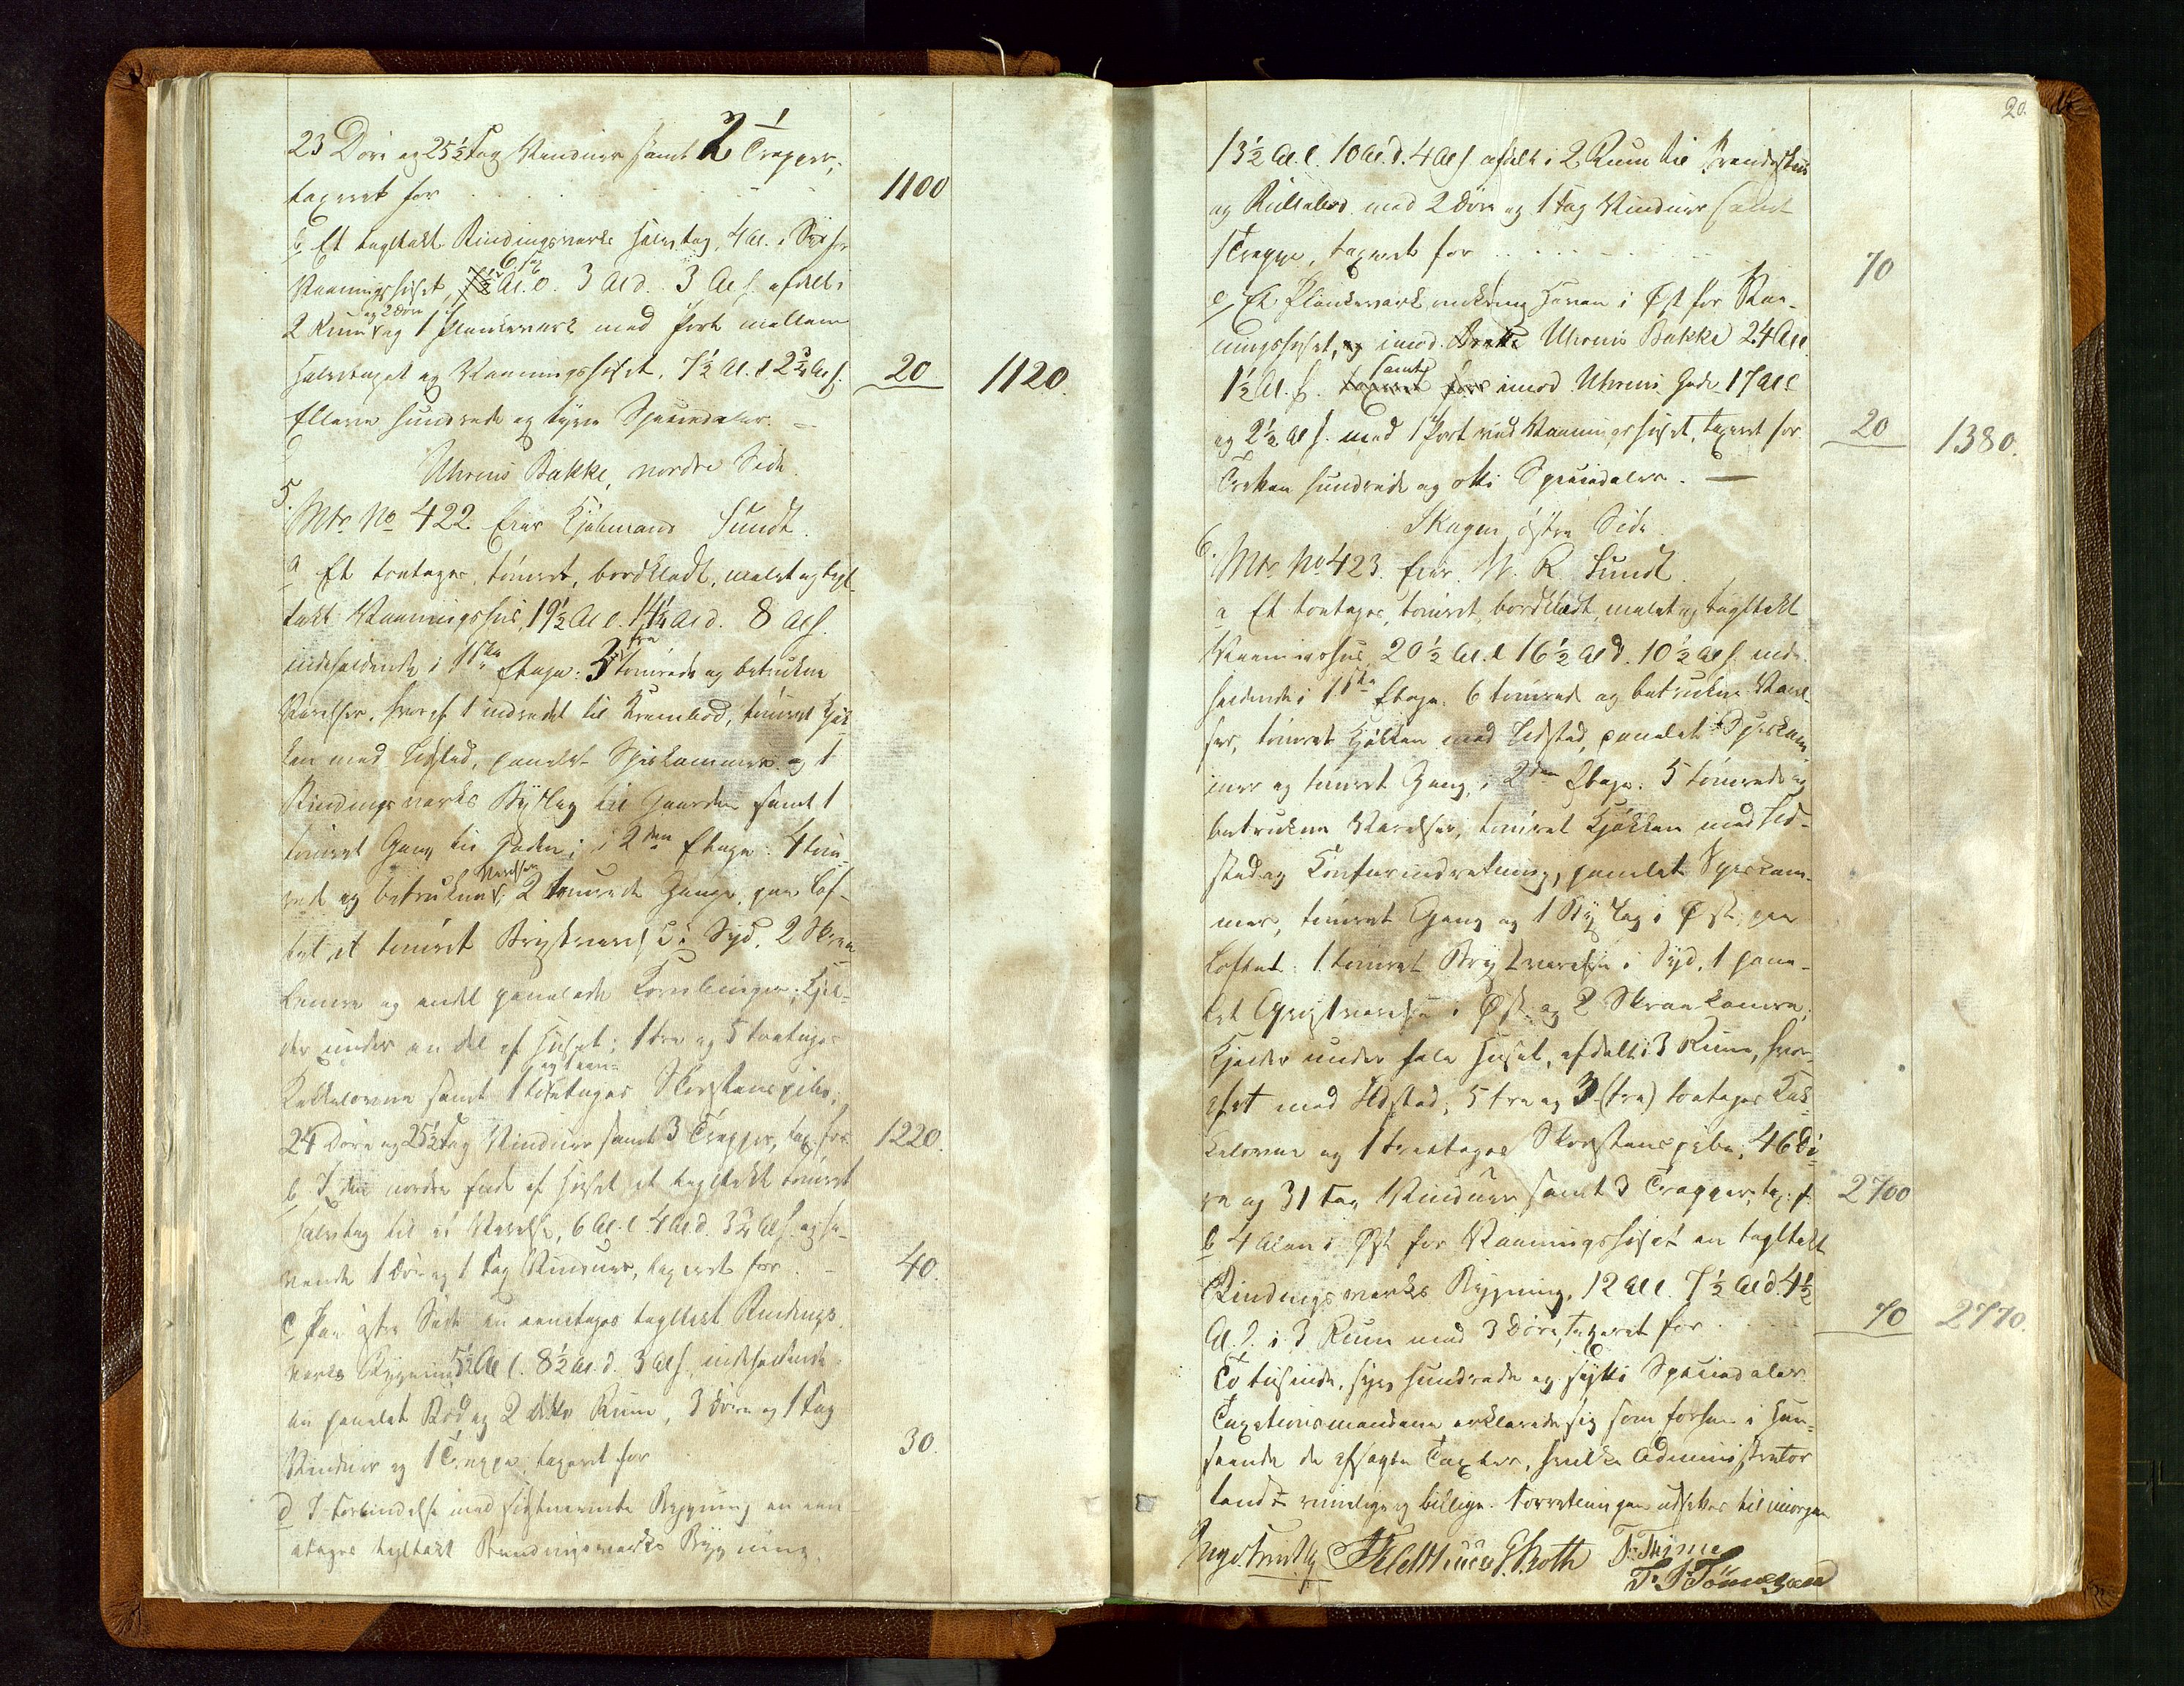 23 Döre og 25½ Fag Vinduer samt 2 Trapper,
taxeret for . . . . 1100
b Et tegltækt Bindingsverks Halvtag, 4 Al. i Syd for
Vaaningshuset, 6 Al. l. 3 Al d. 3 Al h. afdelt i
2 Rum og 2 Döre og 1 Plankeverk med Port mellem
Halvtaget og Vaaningshuset, 7½ Al. l 2¾ Al h. 20 1120.
Elleve hundrede og tyve Speciedaler. –
Uhrens Bakke, nordre Side.
5.
Mtr No 422 Eier Kjöbmand Sundt.
a Et toetages, tömret, bordklædt, malet og tegl-
tækt Vaaningshus, 19½ Al l. 14½ Al d. 8 Al h.
indeholdende i 1ste Etage: 3 tre tömrede og betrukne
Værelser, hvoraf 1 indredet til Krambod, tömret Kjök-
ken med Ildsted, panelet Spiskammer og 1
Bindingsverks Byslag til Gaarden samt 1
tömret Gang til Gaden; i 2den Etage: 4 töm-
rede og betrukne Værelser, 2 tömrede Gange, paa Lof-
tet et tömret Brystværelse i Syd, 2 Skraa-
kamre og endel panelede Fornelinger; Kjel-
der under en del af Huset; 1 tre og 5 toetages
Kakkelovne samt 1 toetages og 1 een- Skorstenspibe,
24 Döre og 25½ Fag Vinduer samt 3 Trapper, tax. for 1220.
b I den nordre Ende af Huset et tegltækt tömret
Halvtag til et Værelse, 6 Al. l. 4 Al d. 3¾ Al h. og ha-
vende 1 Dör og 1 Fag Vinduer, taxeret for . – 40.
c Paa östre Side en eenetages tegltækt Bindings-
verks Bygning, 5½ Al l. 8½ Al. d. 3 Al h. indeholdende
en panelet Bod og 2 dito Rum, 3 Döre og 1 Fag
Vinduer og 1 Trappe taxeret for 30.
d I Forbindelse med sidstnævnte Bygning en een-
etages tegltækt Bindingsverks Bygning,
20.
13½ Al. l. 10 Al. d. 4 Al h. afdelt i 2 Rum til Brændehus
og Rullebod med 2 Döre og 1 Fag Vinduer samt
1 Trappe, taxeret for . . . . 70
e Et Plankeverk omkring Haven i Öst for Vaa-
ningshuset, og imod Uhrens Bakke 24 Al l.
1½ Al. h. taxeret for samt imod Uhrens Gade 17 Al l
og 2½ Al h. med 1 Port ved Vaaningshuset, taxeret for 20 1380.
Tretten hundrede og otti Speciedaler. —
Skagen, östre Side.
6.
Mtr No 423. Eier. W. R. Sundt.
a Et toetages, tömret, bordklædt, malet og tegltækt
Vaaningshus, 20½ Al. l 16½ Al d. 10½ Al h. inde-
holdende i 1ste Etage: 6 tömrede og betrukne Værel-
ser, tömret Kjökken med Ildsted, panelet Spiskam-
mer og tömret Gang, i 2den Etage: 5 tömrede og
betrukne Værelser, tömret Kjökken med Ild-
sted og Komfurindretning, panelet Spiskam-
mer, tömret Gang og 1 Byslag i Öst; paa
Loftet: 1 tömret Brystværelse i Syd, 1 pane-
let Qvistværelse i Öst og 2 Skraakamre;
Kjelder under hele Huset, afdelt i 3 Rum, hvor-
af et med Ildsted; 5 tre og 3 (tre) toetages Kak-
kelovne og 1 treetages Skorstenspibe, 46 Dö-
re og 31 Fag Vinduer samt 3 Trapper, tax. f. 2700
b 4 Alen i Öst for Vaaningshuset en tegltækt
Bindingsverks Bygning, 12 Al l. 7½ Al d. 4½
Al. h. i 3 Rum med 3 Döre, taxeret for . . 70 2770.
To tusinde, syv hundrede og sytti Speciedaler.
Taxationsmændene erklærede sig som forhen i Hen-
seende de afsagte Taxter, hvilke Administrator
fandt rimelige og billige. Forretningen udsattes til imorgen.
F Feldthuus G. Roth T. Thime
T. P. Tönnesen